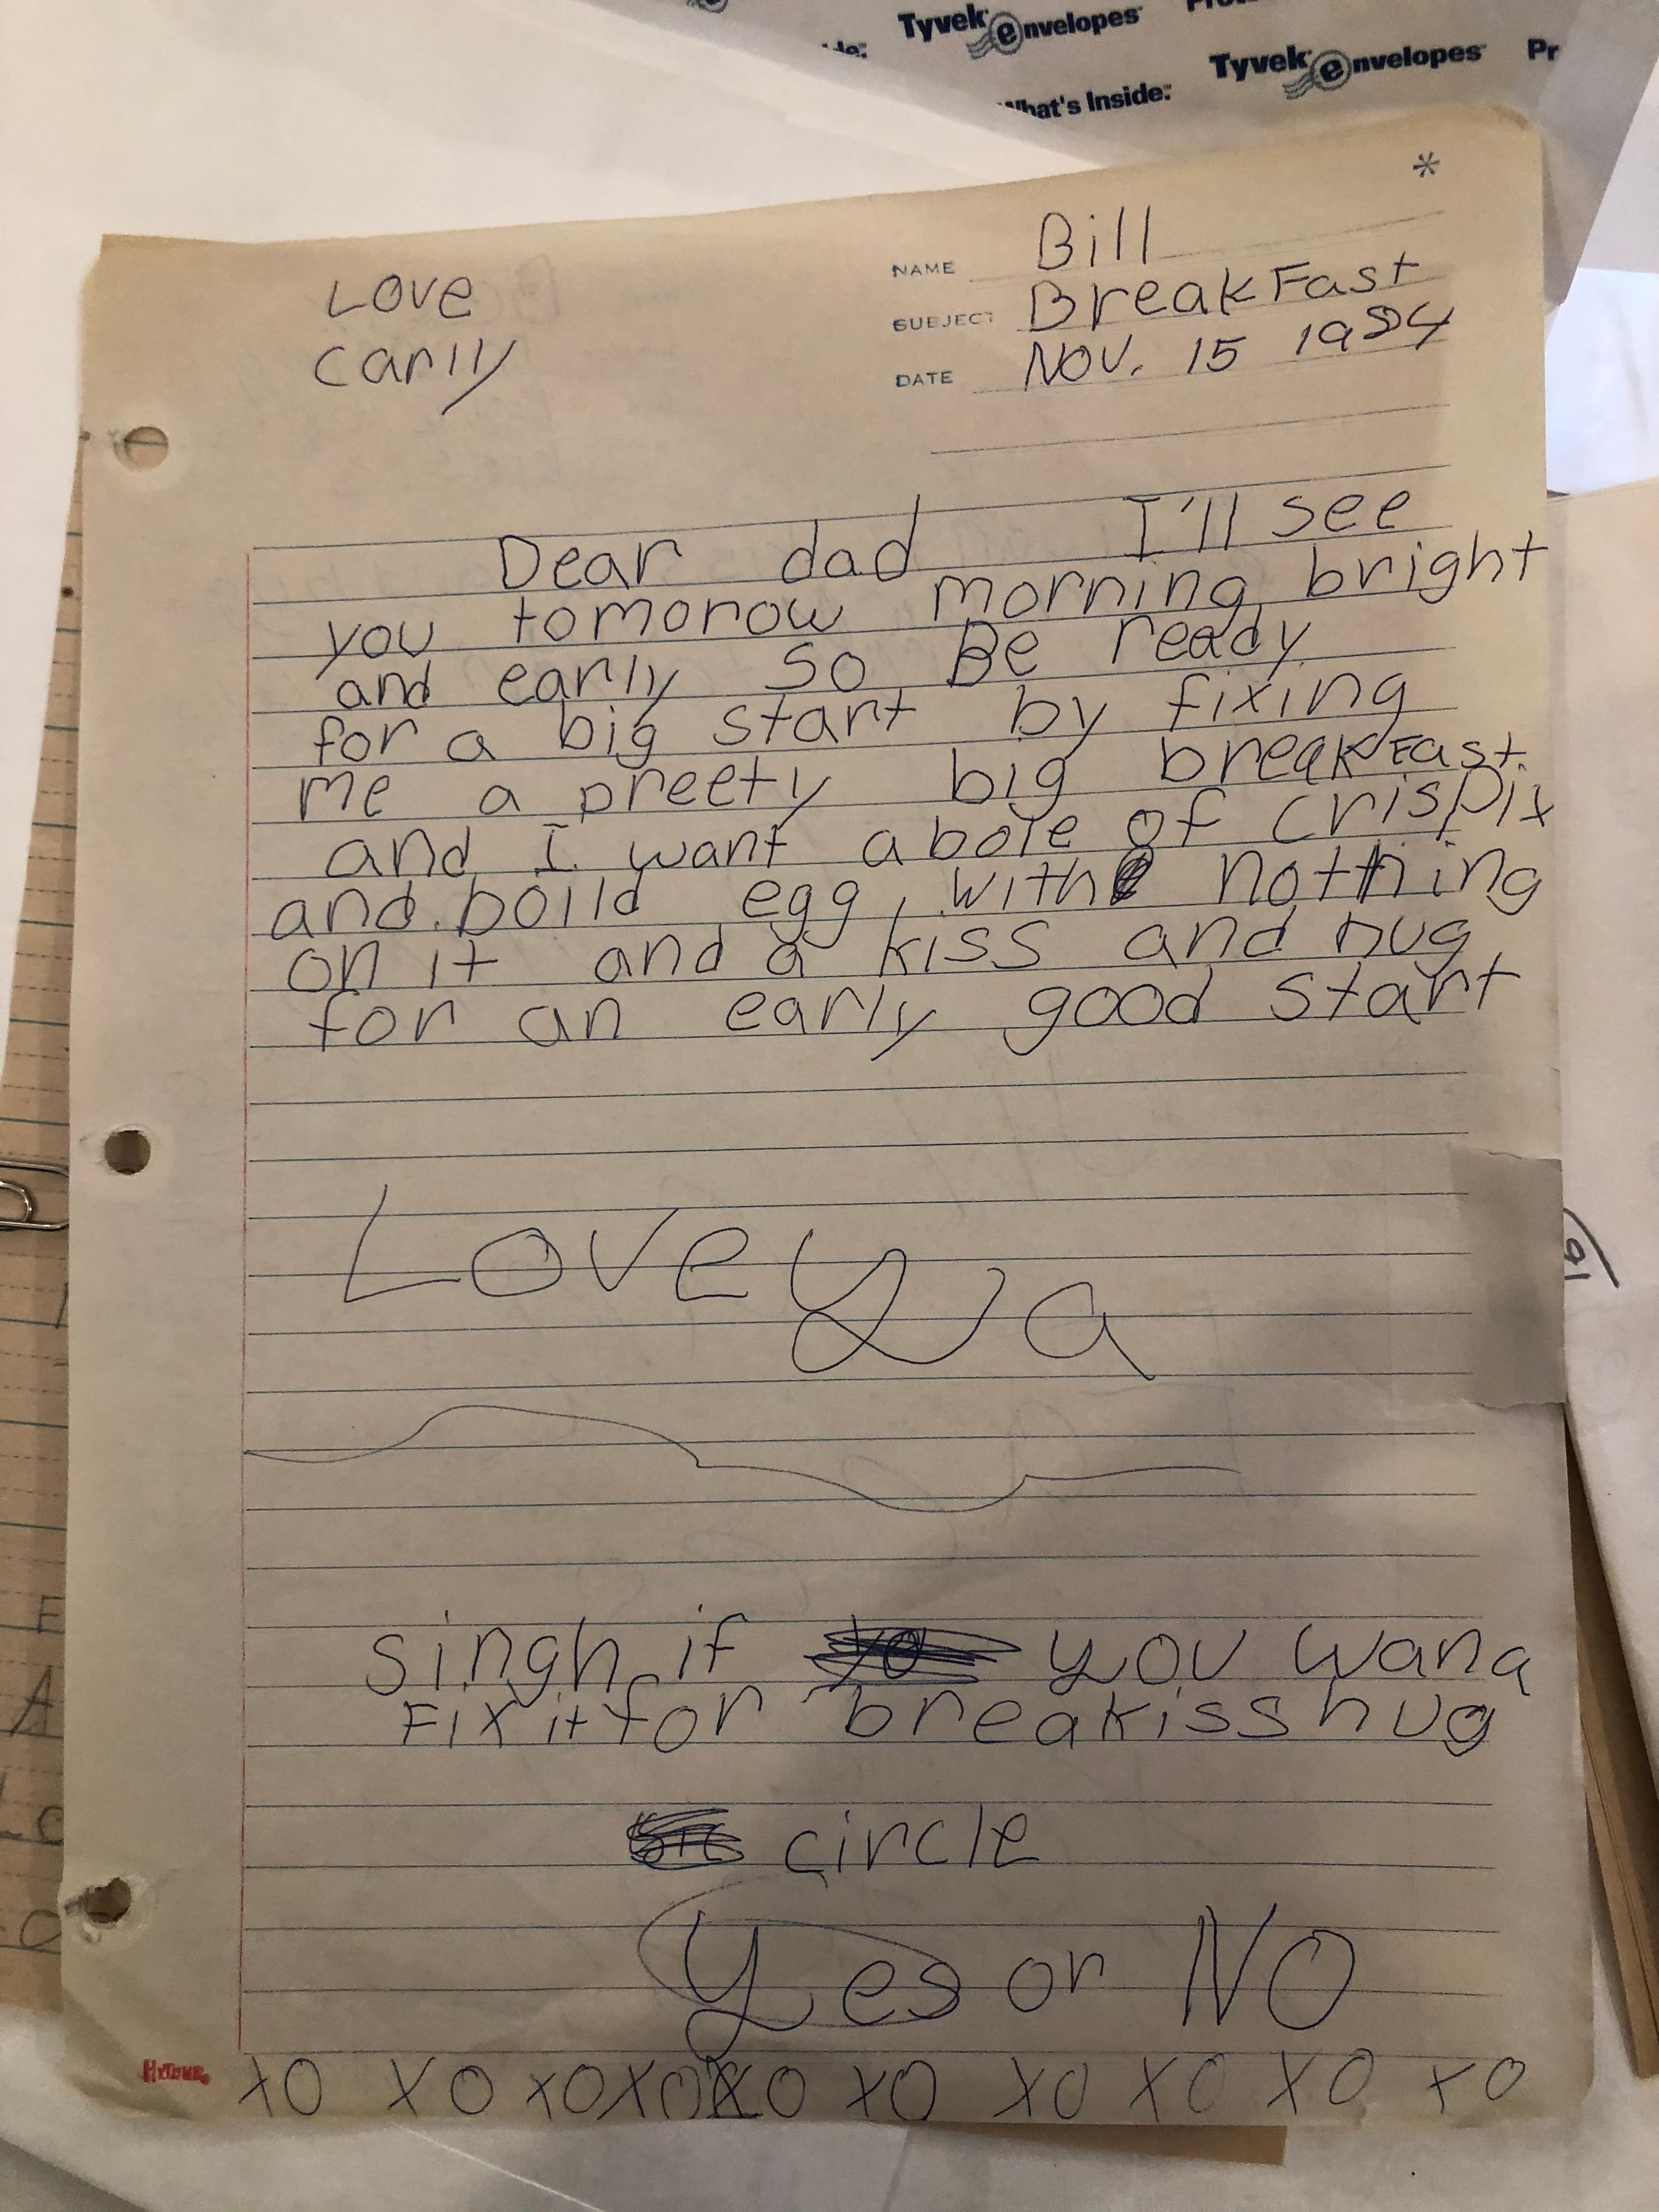 Tyvek envelopes
Tyvek envelopes Pr
What's Inside:
*
NAME Bill
SUBJECT BreakFast
DATE NOV. 15 1984
Love
carlly
Dear dad I'll see
you tomorow morning bright
and early so Be ready
for a big start by fixing
me a preety big breakFast.
and I want a bole of crispix
and boild egg, with nothing
on it and a kiss and hug
for an early good start
Love Ya
singh if you wana
Fix it for breakisshug
circle
Yes or NO
XO XO XO XO XO XO XO XO XO XO